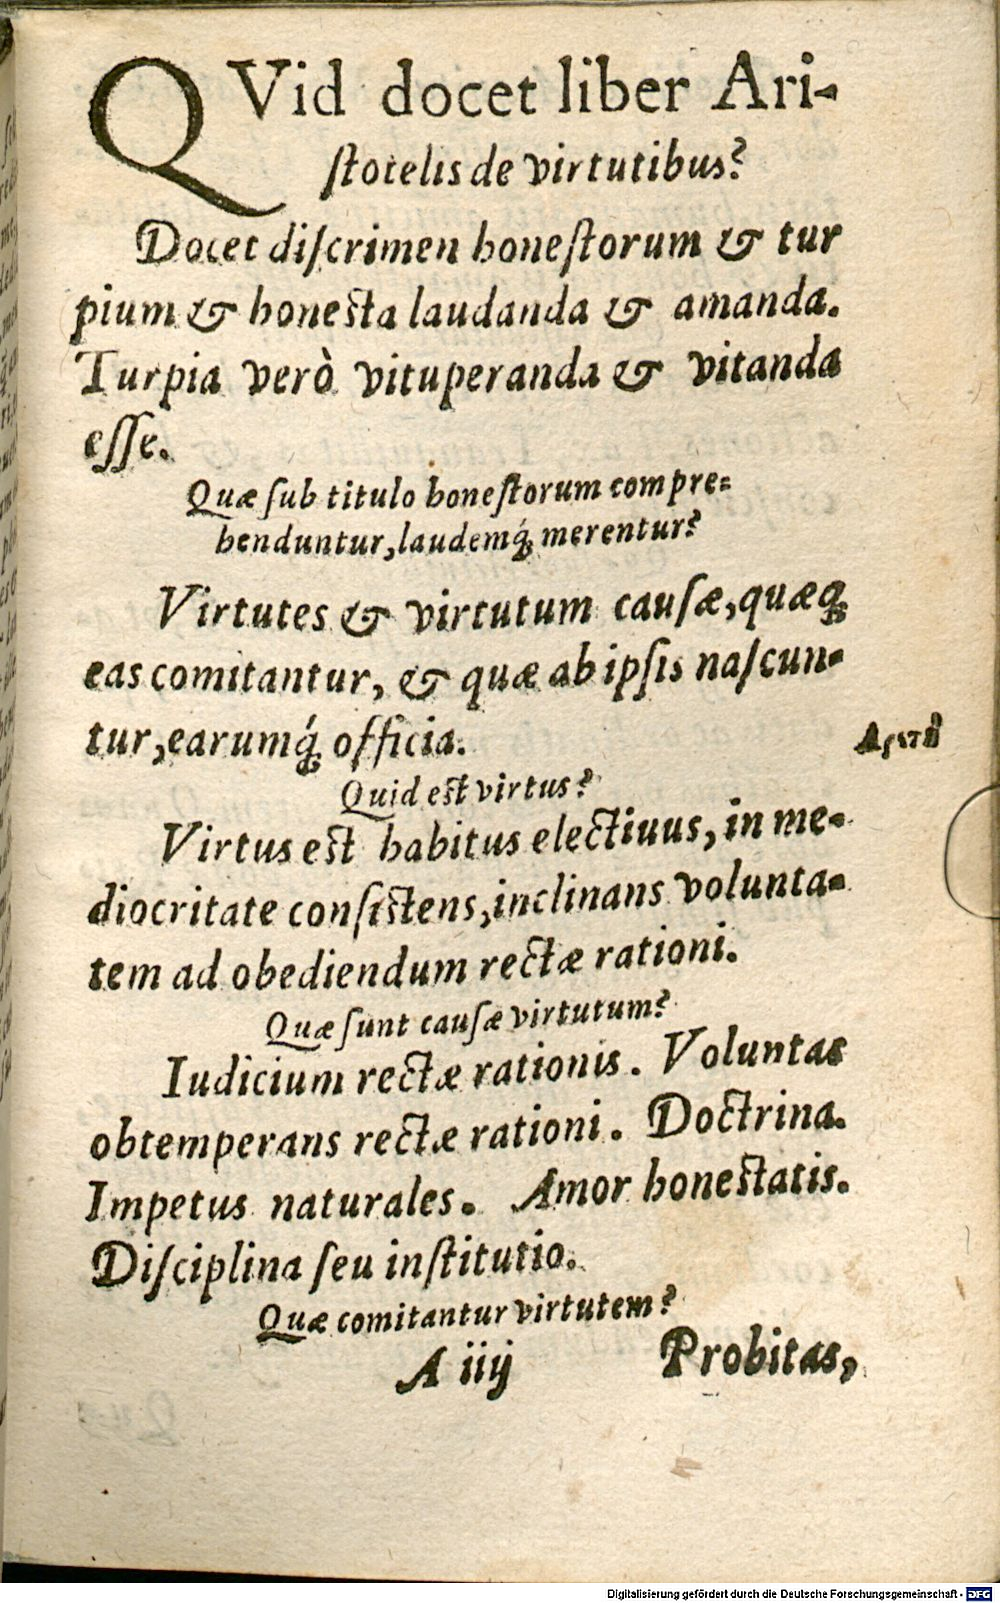 QVid docet liber Ari-
ſtotelis de virtutibus?
Docet diſcrimen honeſtorum & tur
pium & honesta laudanda & amanda.
Turpia verò vituperanda & vitanda
eſſe.
Quæ ſub titulo honeſtorum compre-
henduntur, laudemq́; merentur?
Virtutes & virtutum cauſæ, quæq;
eas comitantur, & quæ ab ipſis naſcun-
tur, earumq́; officia.
Quid est virtus?
Virtus est habitus electiuus, in me-
diocritate conſistens, inclinans volunta-
tem ad obediendum rectæ rationi.
Quæ ſunt cauſæ virtutum?
Iudicium rectæ rationis. Voluntas
obtemperans rectæ rationi. Doctrina.
Impetus naturales. Amor honestatis.
Diſciplina ſeu inſtitutio.
Quæ comitantur virtutem?
A iiij Probitas,
Digitalisierung gefördert durch die Deutsche Forschungsgemeinschaft - DFG